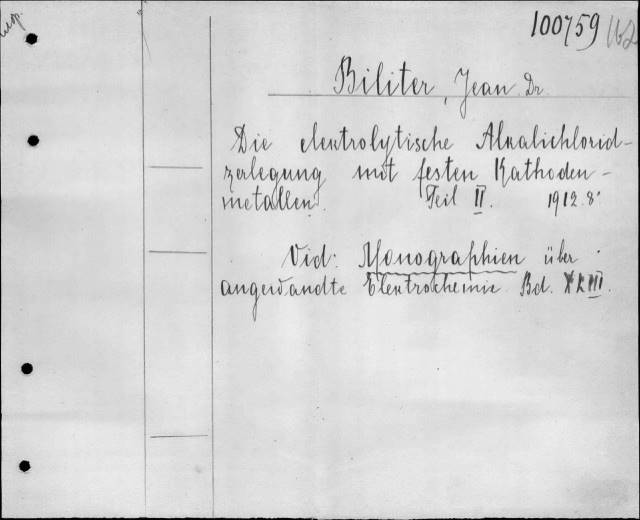 100759
Biliter, Jean Dr.
Die elektrolytische Alkalichlorid-
zerlegung mit festen Kathoden-
metallen. Teil II. 1912. 8°
Vid: Monographien über
angewandte Elektrochemie Bd.